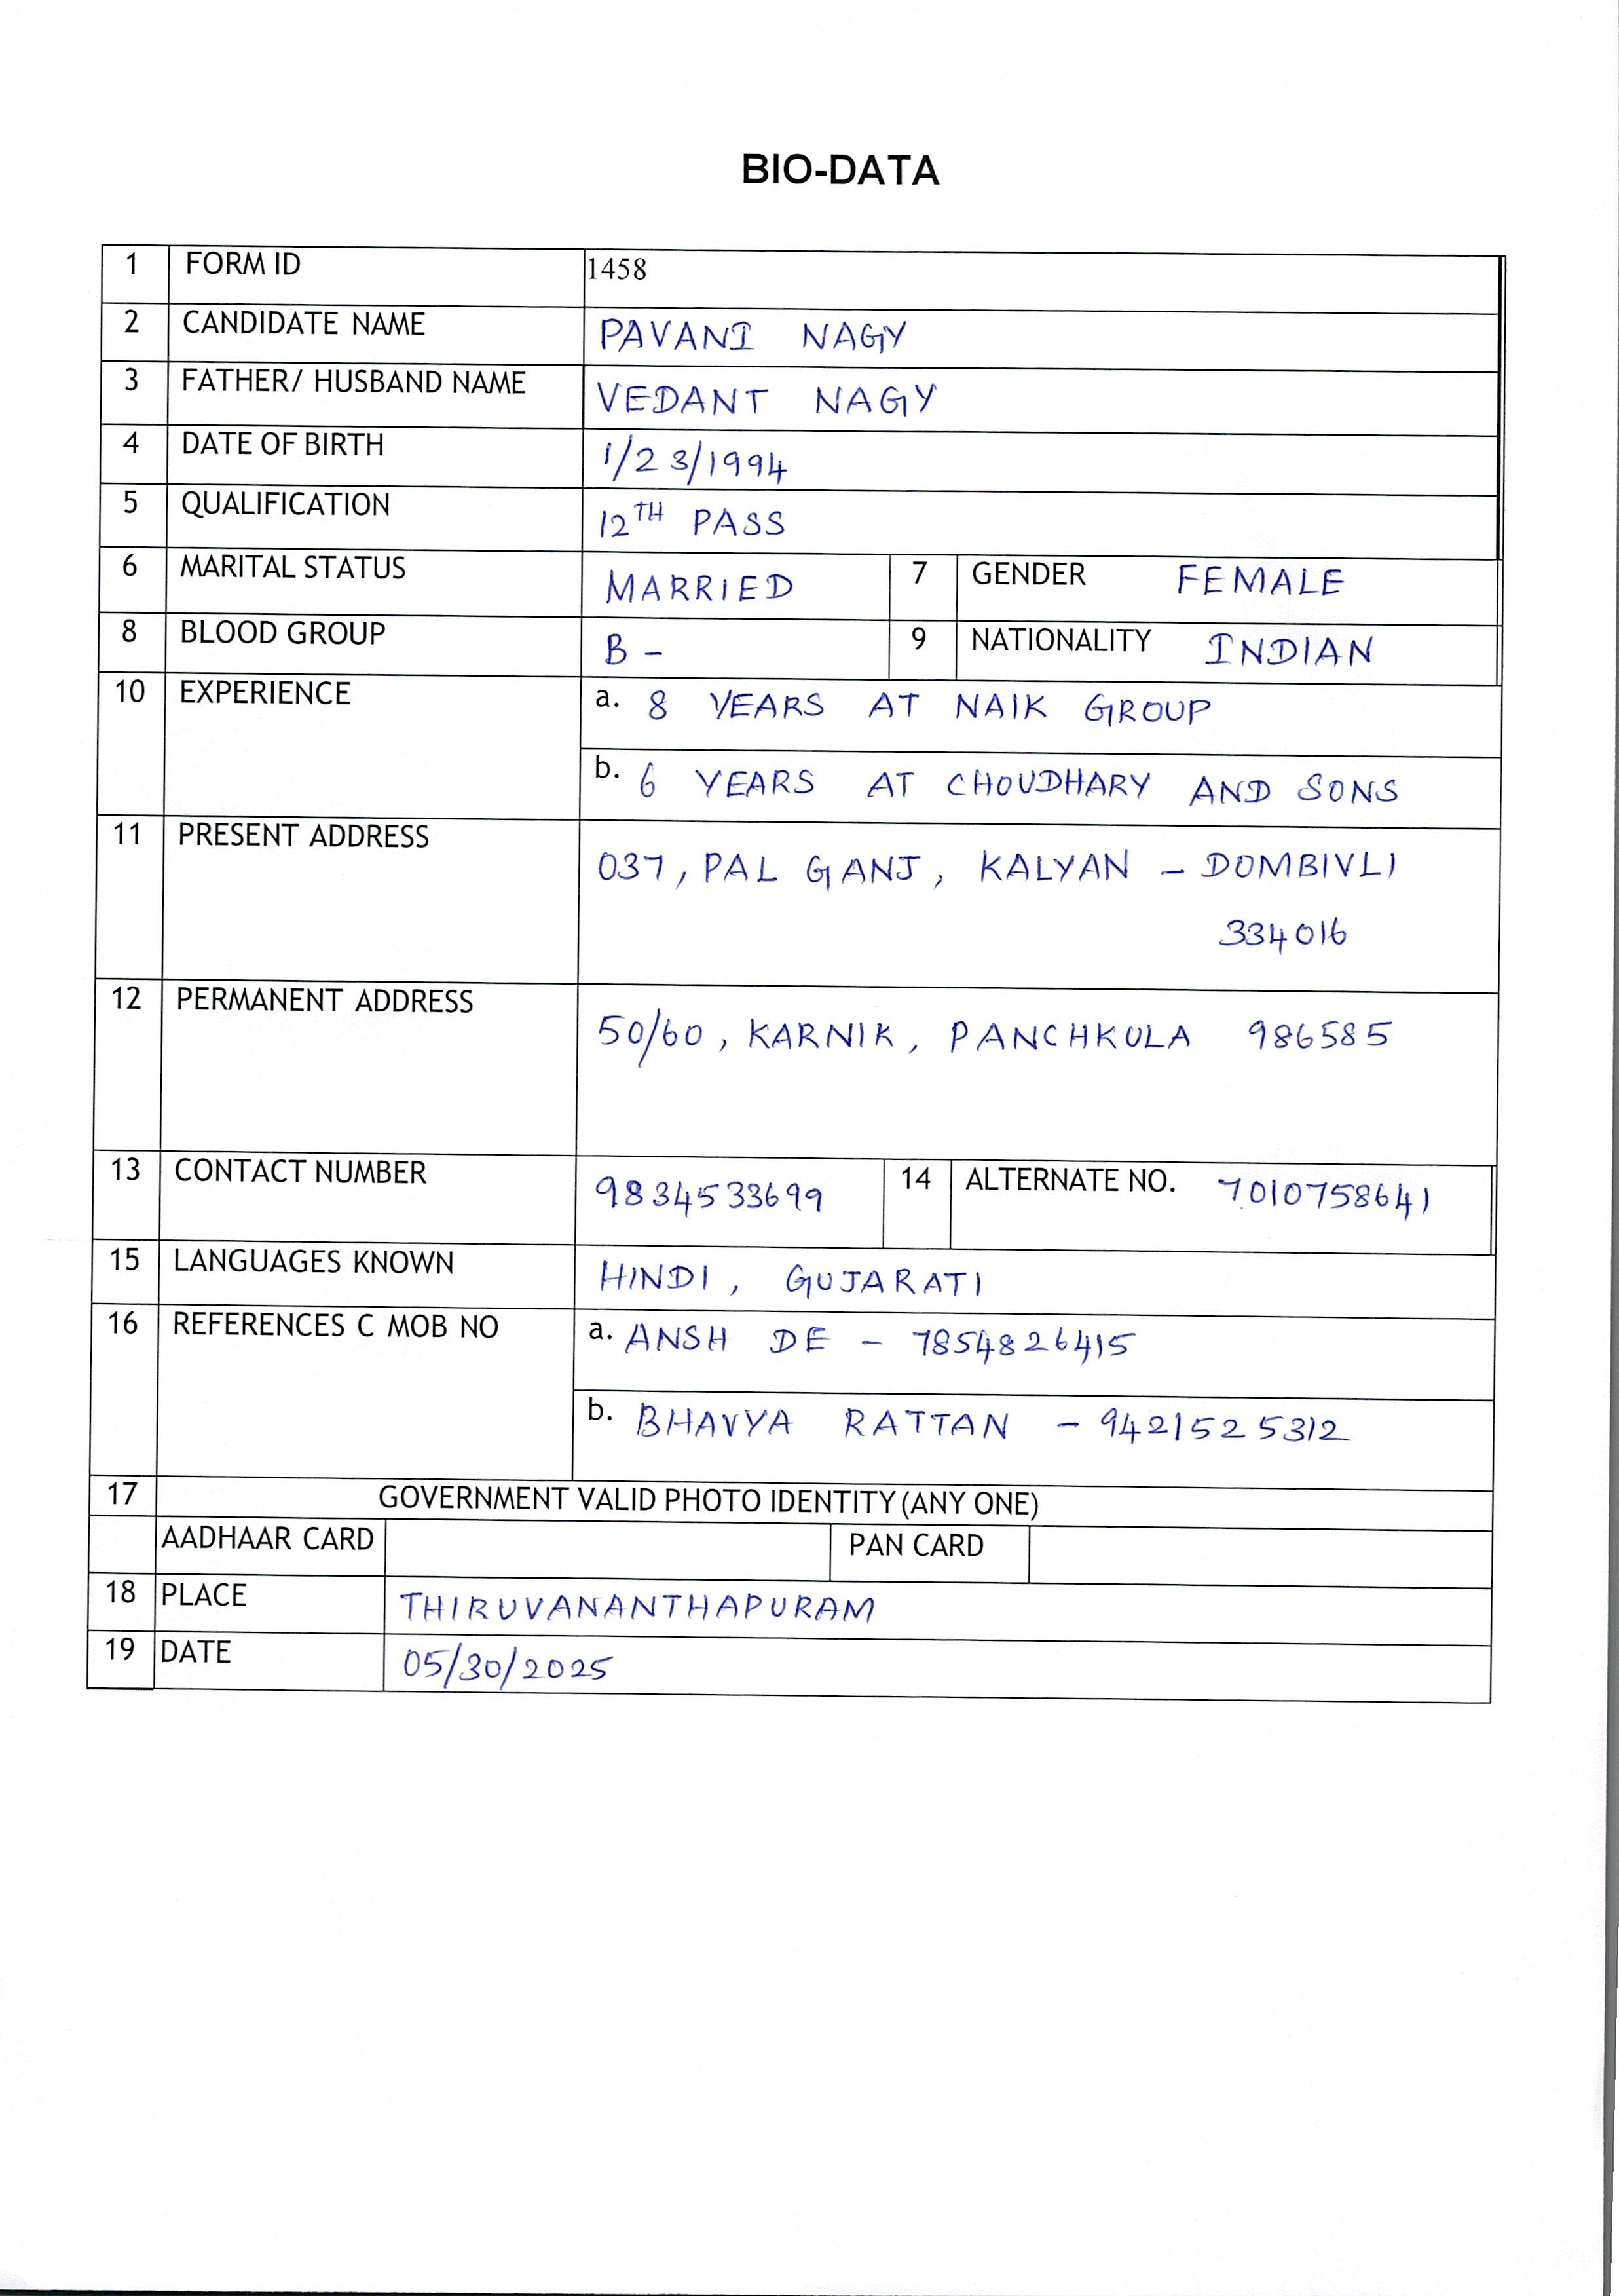 BIO-DATA
1 FORM ID 1458
2 CANDIDATE NAME PAVANI NAGY
3 FATHER/ HUSBAND NAME VEDANT NAGY
4 DATE OF BIRTH 1/23/1994
5 QUALIFICATION 12TH PASS
6 MARITAL STATUS MARRIED 7 GENDER FEMALE
8 BLOOD GROUP B - 9 NATIONALITY INDIAN
10 EXPERIENCE a. 8 YEARS AT NAIK GROUP
b. 6 YEARS AT CHOUDHARY AND SONS
11 PRESENT ADDRESS 037, PAL GANJ, KALYAN - DOMBIVLI
334016
12 PERMANENT ADDRESS 50/60, KARNIK, PANCHKULA 986585
13 CONTACT NUMBER 9834533699 14 ALTERNATE NO. 7010758641
15 LANGUAGES KNOWN HINDI, GUJARATI
16 REFERENCES C MOB NO a. ANSH DE - 7854826415
b. BHAVYA RATTAN - 9421525312
17 GOVERNMENT VALID PHOTO IDENTITY (ANY ONE)
AADHAAR CARD PAN CARD
18 PLACE THIRUVANANTHAPURAM
19 DATE 05/30/2025